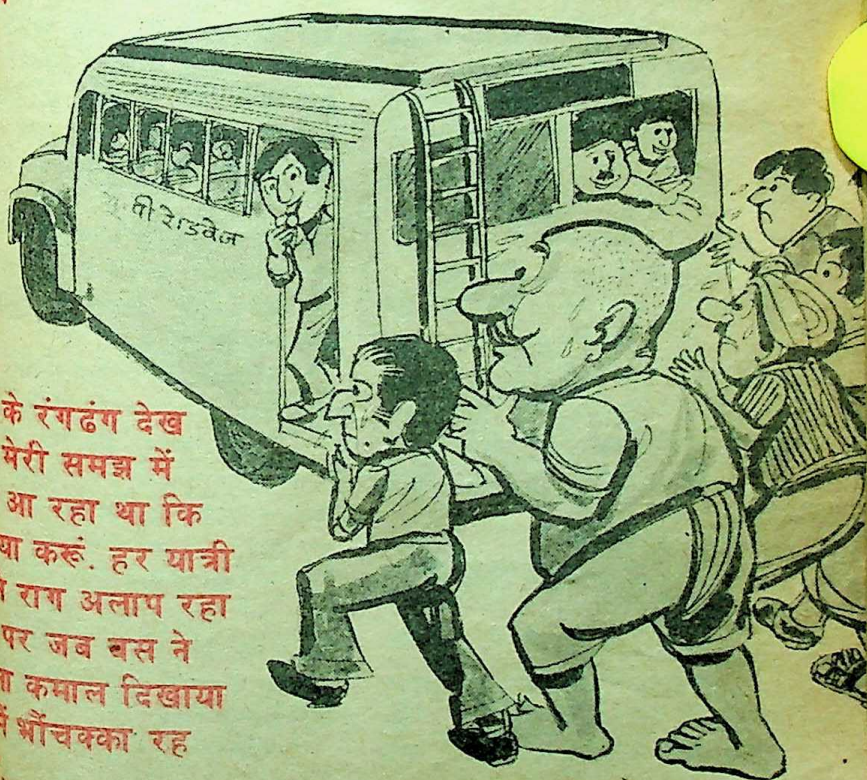 ती रोडवेज
के रंगढंग देख
मेरी समझ में
आ रहा था कि
करूं. हर यात्री
राग अलाप रहा
पर जब बस ने
कमाल दिखाया
भौंचक्का रह